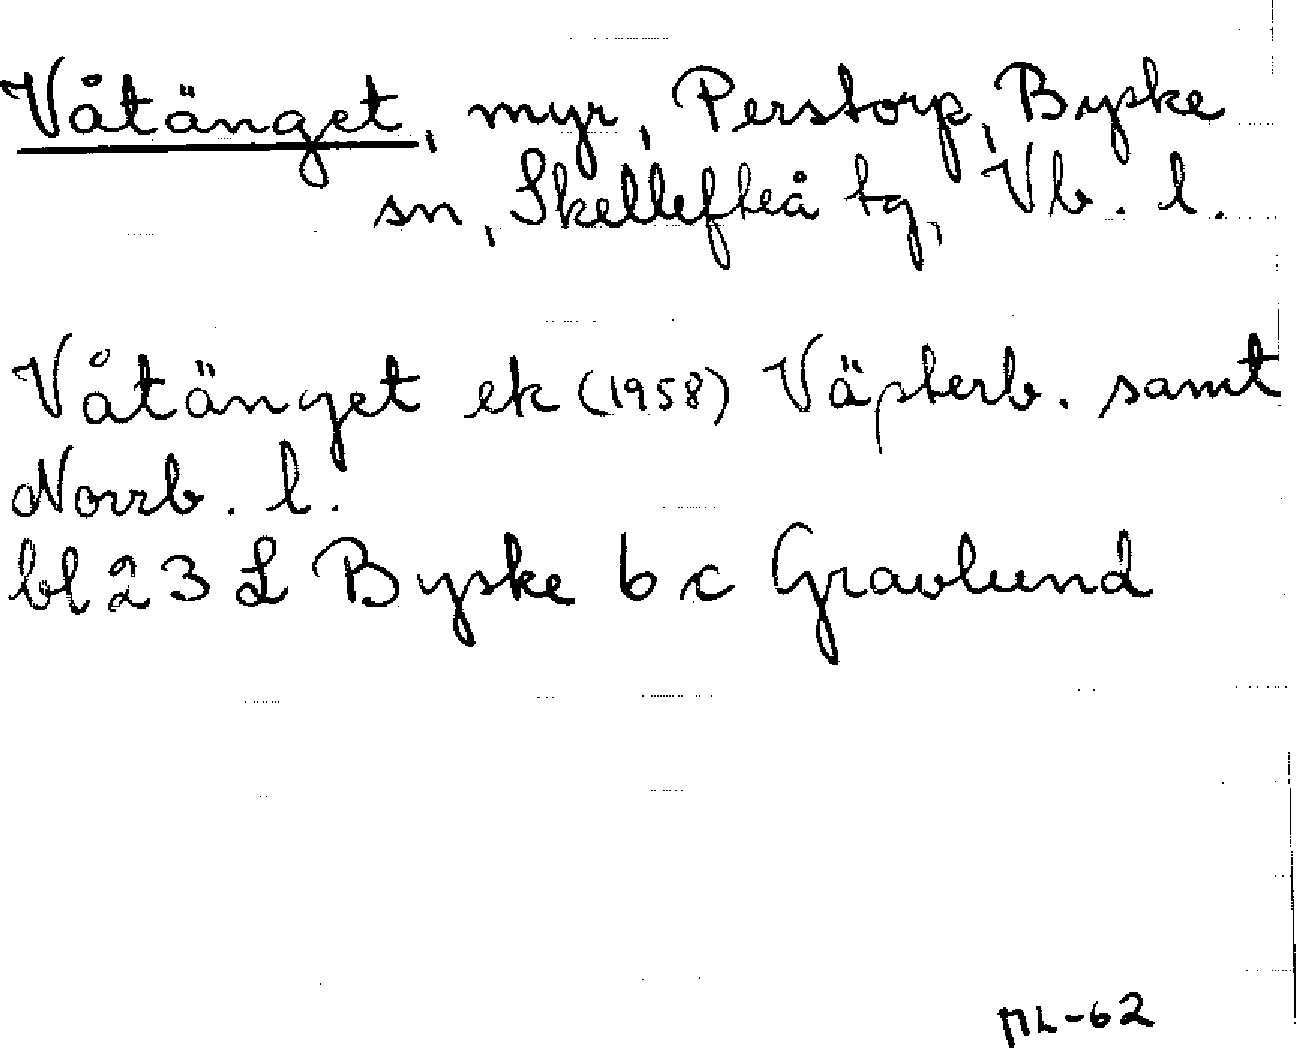 Våtänget, myr, Perstorp, Byske
sn, Skellefteå tg, Vb. l.
Våtänget ek (1958) Västerb. samt
Norrb. l.
bl 23 L Byske b c Gravlund
ML-62